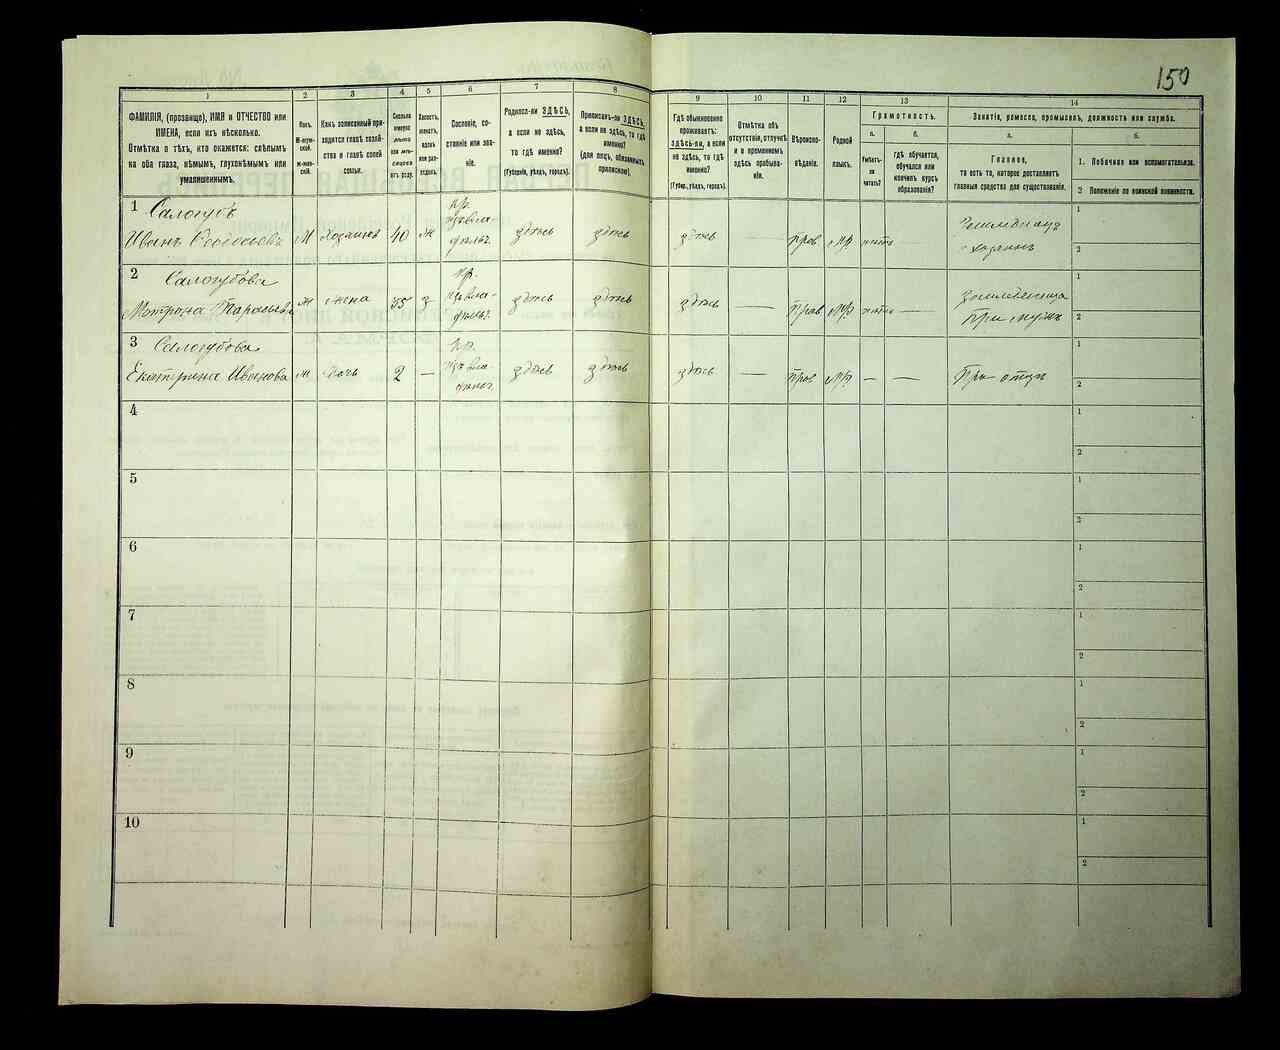 150
1
ФАМИЛІЯ, (прозвище), ИМЯ и ОТЧЕСТВО или
ИМЕНА, если ихъ нѣсколько.
Отмѣтка о тѣхъ, кто окажется: слѣпымъ
на оба глаза, нѣмымъ, глухонѣмымъ или
умалишеннымъ.
2
Полъ.
М-муж-
ской.
Ж-жен-
скій.
3
Какъ записанный при-
ходится главѣ хозяй-
ства и главѣ своей
семьи.
4
Сколько
минуло
лѣтъ
или мѣ-
сяцевъ
отъ роду.
5
Холостъ,
женатъ,
вдовъ
или раз-
веденъ.
6
Сословіе, со-
стояніе или зва-
ніе.
7
Родился-ли ЗДѢСЬ,
а если не здѣсь,
то гдѣ именно?
(Губернія, уѣздъ, городъ).
8
Приписанъ-ли ЗДѢСЬ,
а если не здѣсь, то гдѣ
именно?
(для лицъ, обязанныхъ
припискою).
9
Гдѣ обыкновенно
проживаетъ:
ЗДѢСЬ-ли, а если
не здѣсь, то гдѣ
именно?
(Губер., уѣздъ, городъ).
10
Отмѣтка объ
отсутствіи, отлучкѣ
и о временномъ
здѣсь пребыва-
ніи.
11
Вѣроиспо-
вѣданіе.
12
Родной
языкъ.
13
Грамотность.
а.
Умѣетъ-
ли
читать?
б.
гдѣ обучается,
обучался или
кончилъ курсъ
образованія?
14
Занятіе, ремесло, промыселъ, должность или служба.
а.
Главное,
то есть то, которое доставляетъ
главныя средства для существованія.
б.
1. Побочное или вспомогательное.
2 Положеніе по воинской повинности.
1 Салогубъ
Иванъ М Хозяинъ 40 ж кр. здѣсь здѣсь здѣсь — Прав нѣтъ — 1
хозяинъ 2
2 Салогубова
Мотрона Жена з кр. здѣсь здѣсь здѣсь — Прав нѣтъ — 1
При 2
3 Салогубова
Екатерина Иванова Дочь 2 — кр. здѣсь здѣсь здѣсь — Прав — — При отцѣ 1
2
4 1
2
5 1
2
6 1
2
7 1
2
8 1
2
9 1
2
10 1
2